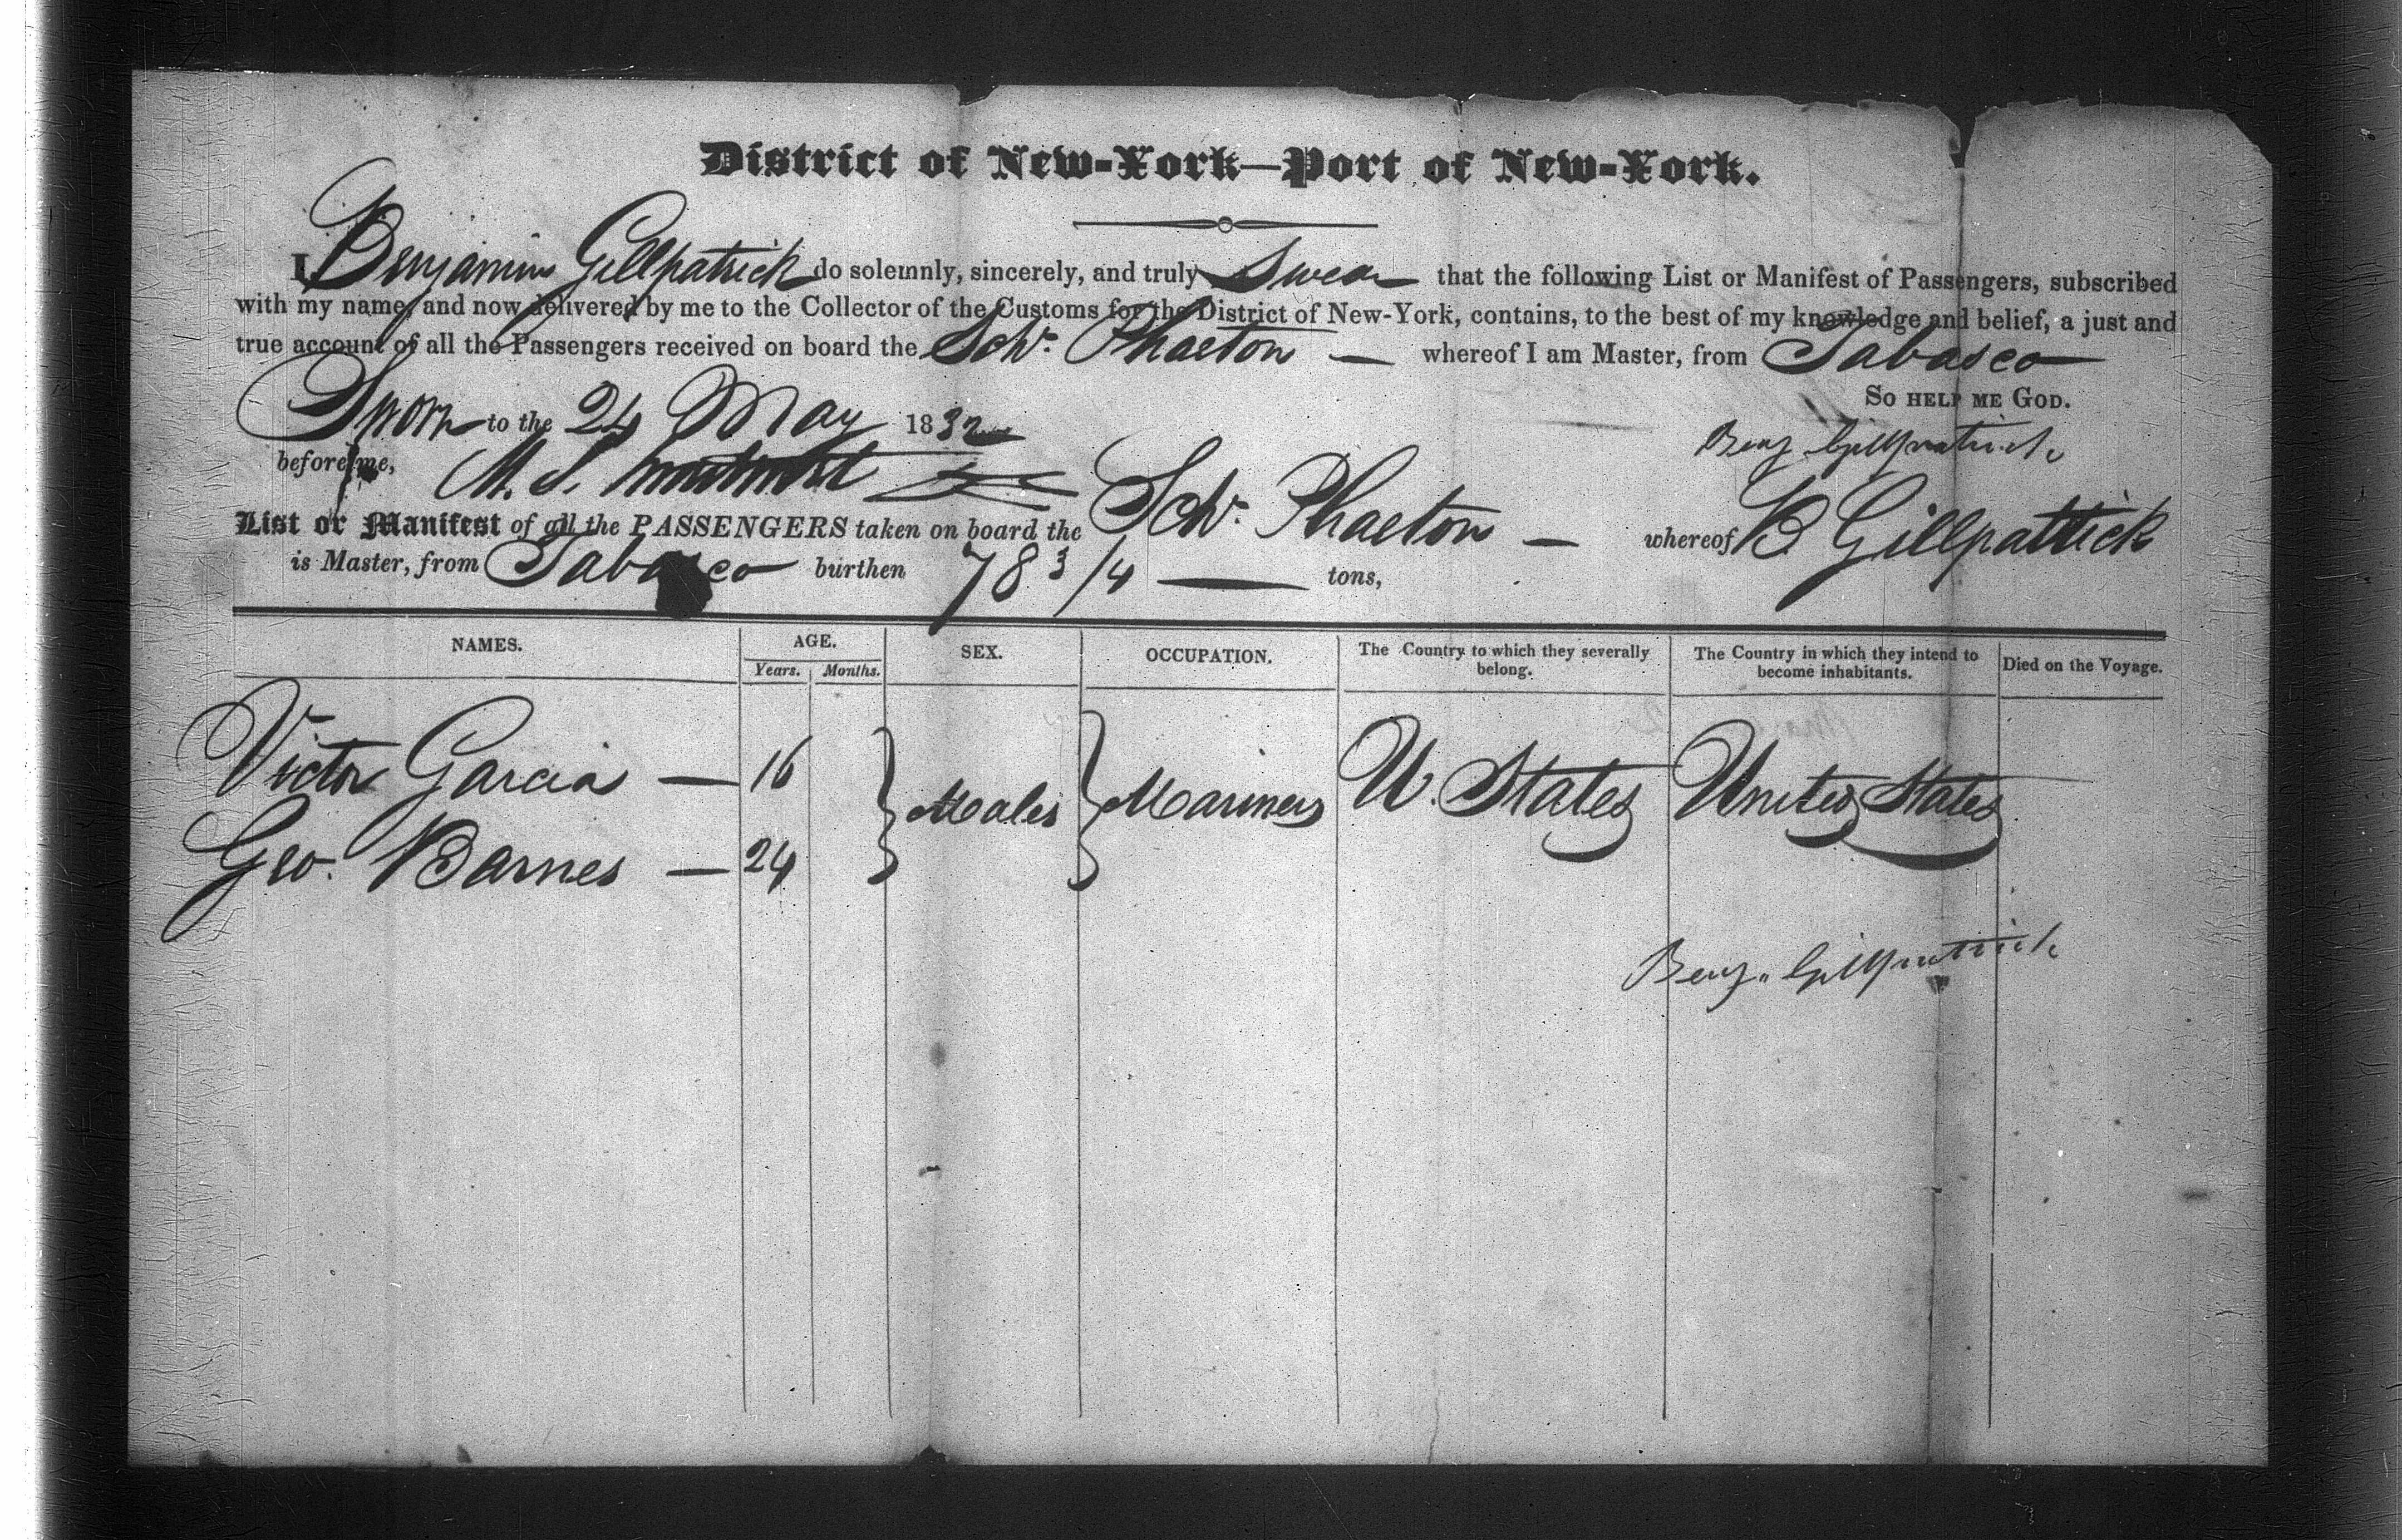 District of New-York—Port of New-York.
I Benjamin Gillpatrick do solemnly, sincerely, and truly Swear that the following List or Manifest of Passengers, subscribed
with my name, and now delivered by me to the Collector of the Customs for the District of New-York, contains, to the best of my knowledge and belief, a just and
true account of all the Passengers received on board the Schr. Phaeton — whereof I am Master, from Tabasco
So HELP ME GOD.
Sworn to the 24 May 1832
Benj Gillpatrick
before me, M. S.
List or Manifest of all the PASSENGERS taken on board the Schr. Phaeton — whereof B. Gillpatrick
is Master, from Tabasco burthen 78 3/4 — tons,
NAMES. AGE. SEX. OCCUPATION. The Country to which they severally belong. The Country in which they intend to become inhabitants. Died on the Voyage.
Years. Months.
Victor Garcia — 16 } Males } Mariners U. States United States
Geo. Barnes — 24
Benj. Gillpatrick